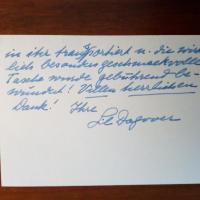 in ihr transportiert u. die wirk-
lich besonders geschmackvolle
Tasche wurde gebührend be-
wundert! Vielen herrlichen
Dank! Ihre
Lil Dagover